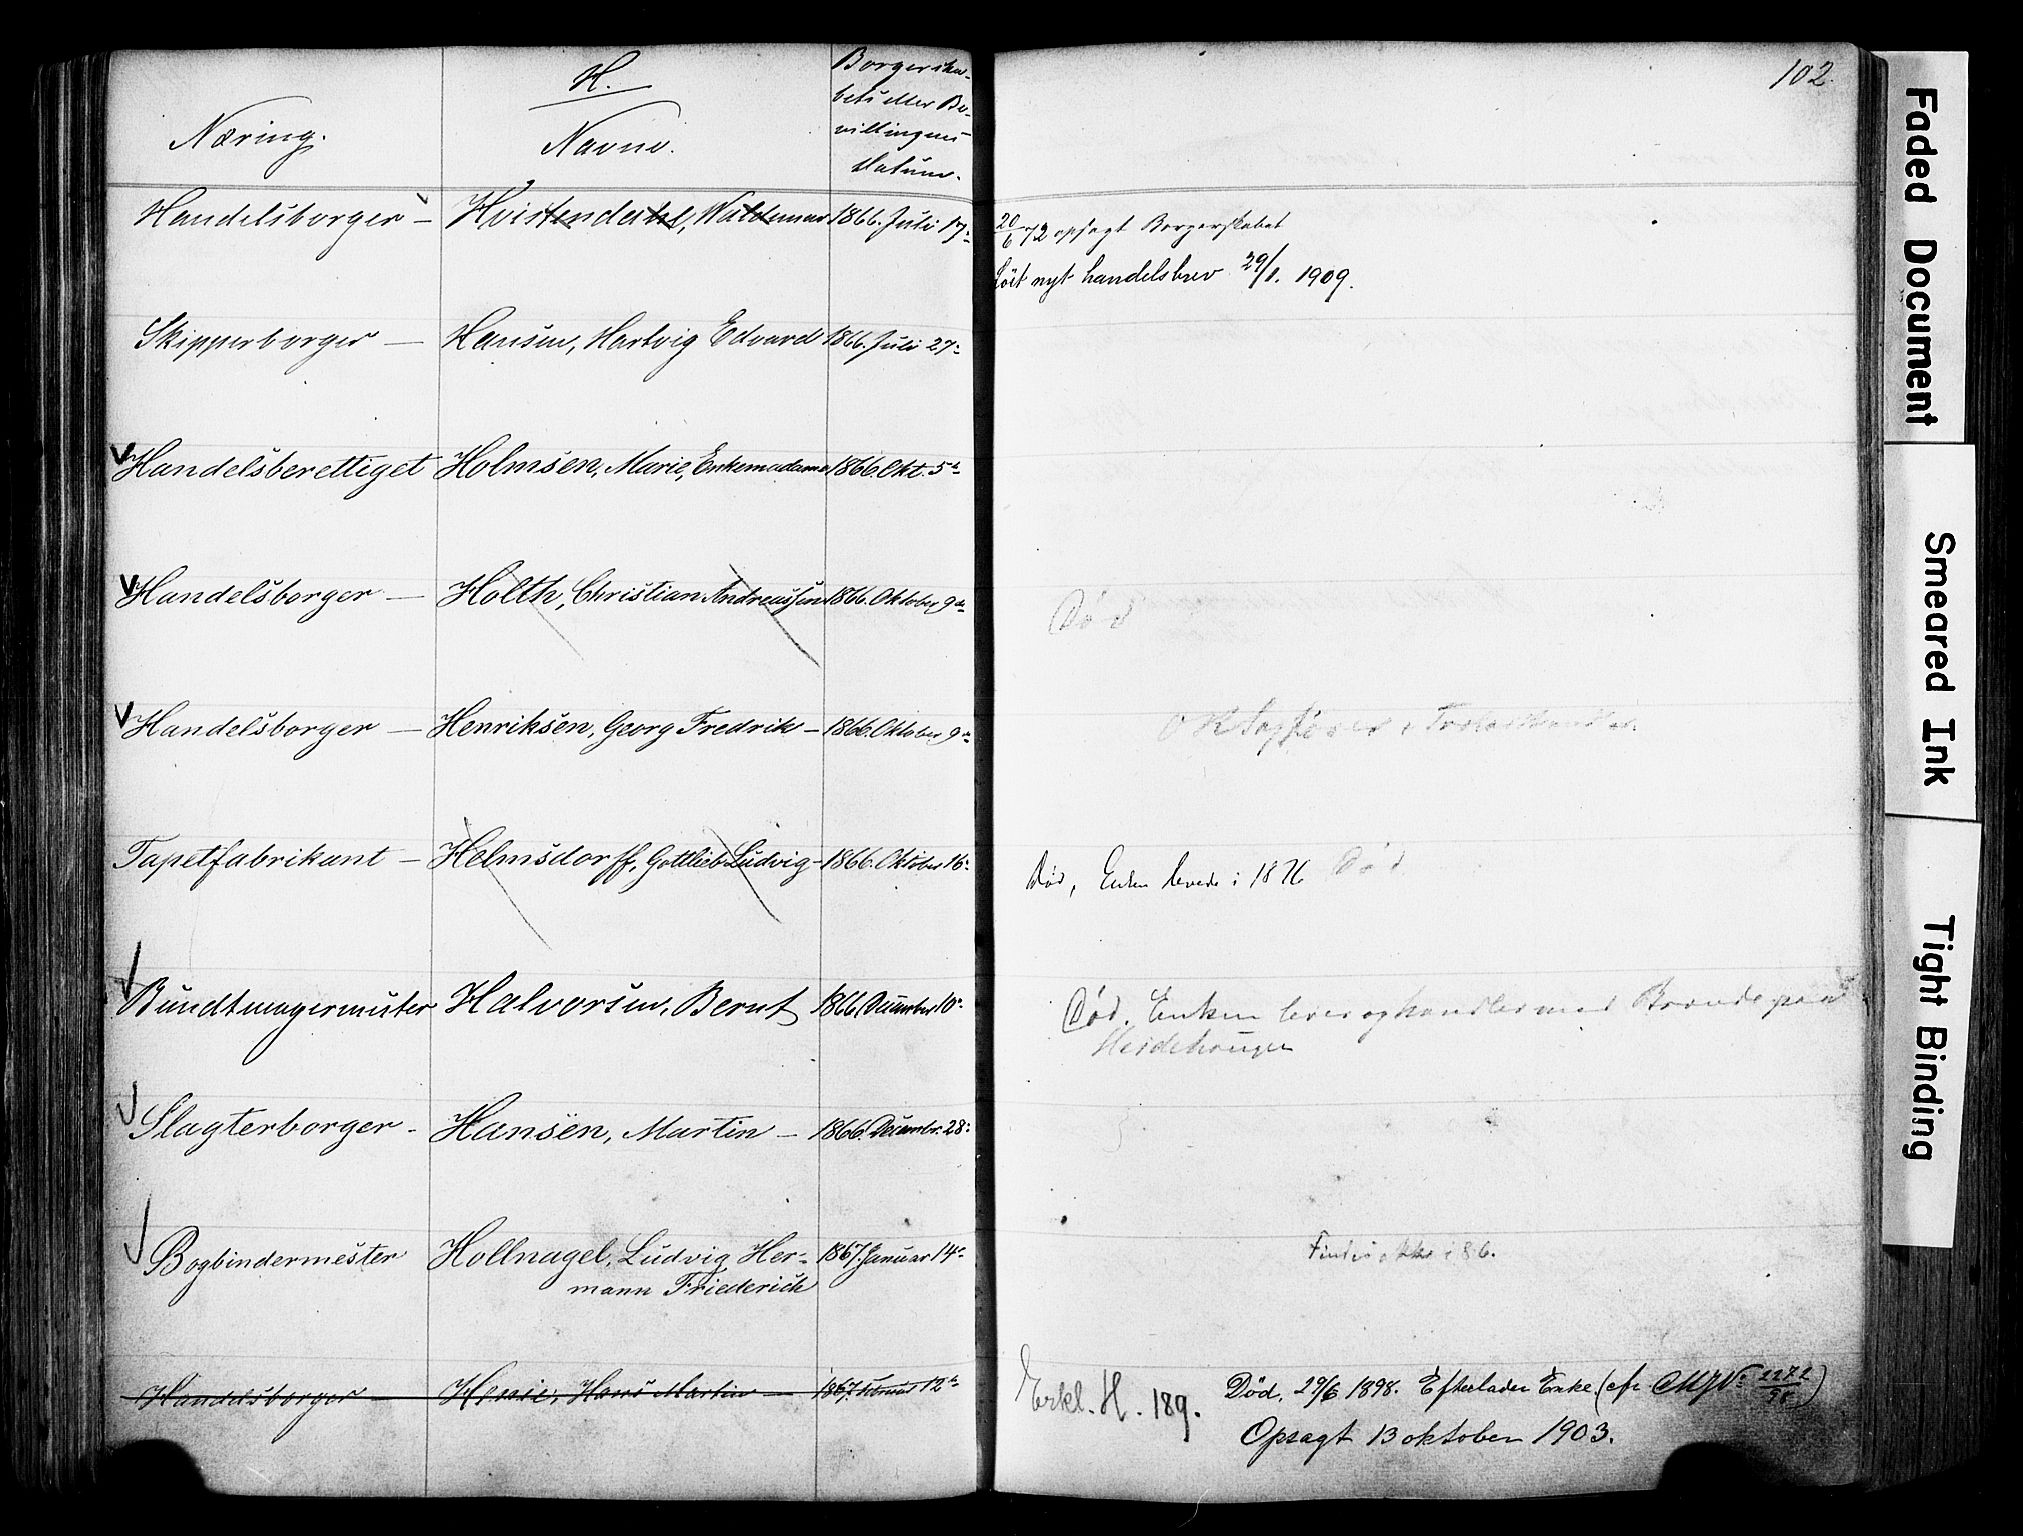 H.
Næring.
Navne.
Borgerska-
bets eller Be-
villingens
Datum.
102.
Handelsborger — Hvistendahl, Waldemar 1866. Juli 17:
20/6 72 opsagt Borgerskabet
Löst nyt handelsbrev 29/1. 1909.
Skipperborger — Hansen, Hartvig Edvard 1866. Juli 27:
Handelsberettiget Holmsen, Marie, Enkemadame 1866. Okt. 5te
Handelsborger — Holth, Christian Andreassen 1866. Oktober 9de
Død
Handelsborger — Henriksen, Georg Fredrik — 1866. Oktober 9de
Tapetfabrikant — Helmsdorff, Gottlieb Ludvig — 1866. Oktober 16:
Død, Enken levede i 1876 Død
Bundtmagermester Halvorsen, Bernt 1866. December 10:
Død. Enken lever og handler med Brænde paa
Slagterborger - Hansen, Martin — 1866. Decembr. 28:
Bogbindermester Hollnagel, Ludvig Her- 1867. Januar 14:
mann Friederich
Findes ikke i 86.
Handelsborger — Hans Martin — 1867. Februar 12te
Erkl. H. 189.
Død. 29/6 1898. Efterlader Enke (cfr 2272/98)
Opsagt 13 oktober 1903.
Faded Document
Smeared Ink
Tight Binding